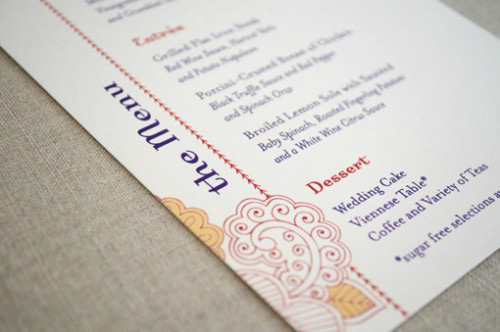 Entrée
Grilled Flat Iron Steak
Red Wine Sauce,
and Potato Napoleon
Porcini-Crusted Breast of Chicken
Black Truffle Sauce and Red Pepper
and Spinach Orzo
Broiled Lemon Sole with Seasoned
Baby Spinach, Roasted Fingerling Potatoes
and a White Wine Citrus Sauce
Dessert
Wedding Cake
Viennese Table*
Coffee and Variety of Teas
*sugar free selections
the Menu